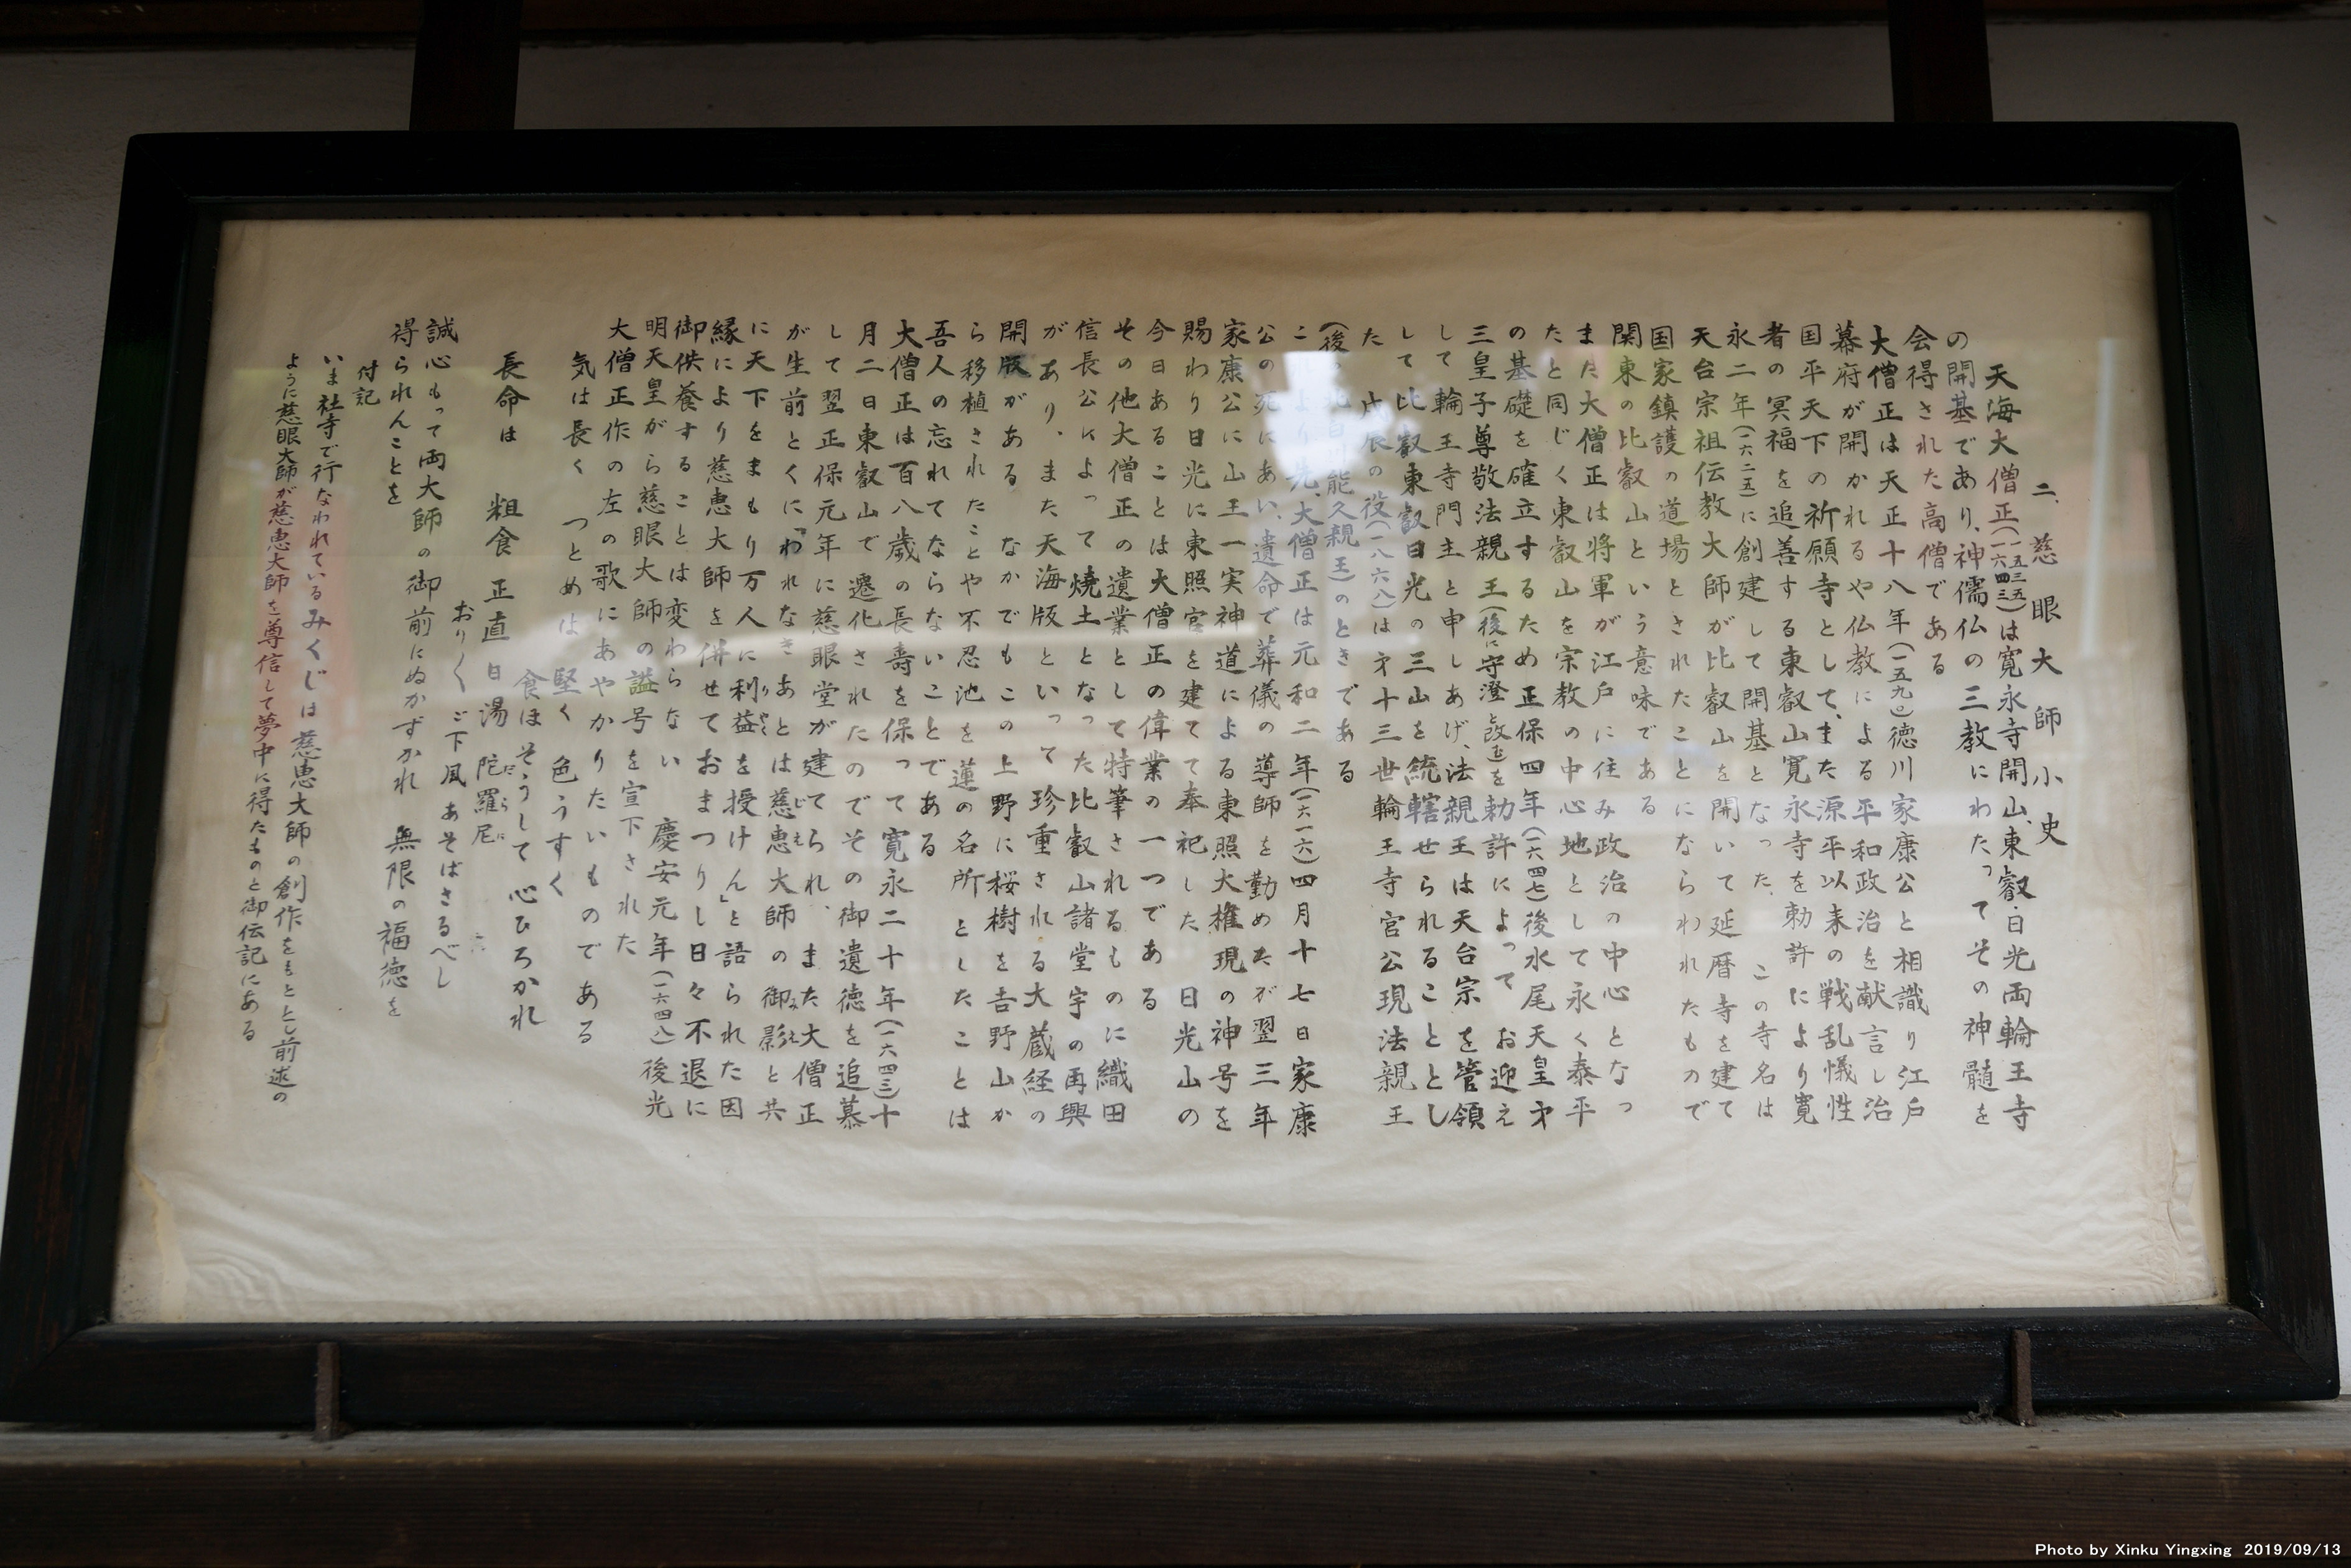 二、慈眼大師小史
天海大僧正(一五三五一六四三)は寛永寺開山、東叡・日光両輪王寺
の開基であり、神儒仏の三教にわたってその神髄を
会得された高僧である
大僧正は天正十八年(一五九〇)徳川家康公と相識り江戸
幕府が開かれるや仏教による平和政治を献言し治
国平天下の祈願寺として、また源平以来の戦乱犠牲
者の冥福を追善する東叡山寛永寺を勅許により寛
永二年(一六二五)に創建して開基となった、この寺名は
天台宗祖伝教大師が比叡山を開いて延暦寺を建て
国家鎮護の道場とされたことにならわれたもので
関東の比叡山という意味である
また大僧正は将軍が江戸に住み政治の中心となっ
たと同じく東叡山を宗教の中心地として永く泰平
の基礎を確立するため正保四年(一六四七)後水尾天皇才
三皇子尊敬法親王(後に守澄と改む)を勅許によってお迎え
して輪王寺門主と申しあげ、法親王は天台宗を管領
して比叡東叡日光の三山を統轄せられることとし
た 戊辰の役(一八六八)は才十三世輪王寺宮公現法親王
(後の北白川能久親王)のときである
これより先、大僧正は元和二年(一六一六)四月十七日家康
公の死にあい、遺命で葬儀の導師を勤めたが翌三年
家康公に山王一実神道による東照大権現の神号を
賜わり日光に東照宮を建てて奉祀した 日光山の
今日あることは大僧正の偉業の一つである
その他大僧正の遺業として特筆されるものに織田
信長公によって焼土となった比叡山諸堂宇の再興
があり、また天海版といって珍重される大蔵経の
開版がある なかでもこの上野に桜樹を吉野山か
ら移植されたことや不忍池を蓮の名所としたことは
吾人の忘れてならないことである
大僧正は百八歳の長寿を保って寛永二十年(一六四三)十
月二日東叡山で遷化されたのでその御遺徳を追慕
して翌正保元年に慈眼堂が建てられ、また大僧正
が生前とくに「われなきあとは慈恵大師の御影と共
に天下をまもり万人に利益を授けん」と語られた因
縁により慈恵大師を併せておまつりし日々不退に
御供養することは変わらない 慶安元年(一六四八)後光
明天皇がら慈眼大師の謚号を宣下された
大僧正作の左の歌にあやかりたいものである
気は長く つとめは 堅く 色うすく
食ほそうして 心ひろかれ
長命は 粗食 正直 日湯 陀羅尼
おりく ご下風 あそばさるべし
誠心もって両大師の御前にぬかずかれ 無限の福徳を
得られんことを
付記
いま社寺で行なわれているみくじは慈恵大師の創作をもととし前述の
ように慈眼大師が慈恵大師を尊信して夢中に得たものと御伝記にある
Photo by Xinku Yingxing 2019/09/13